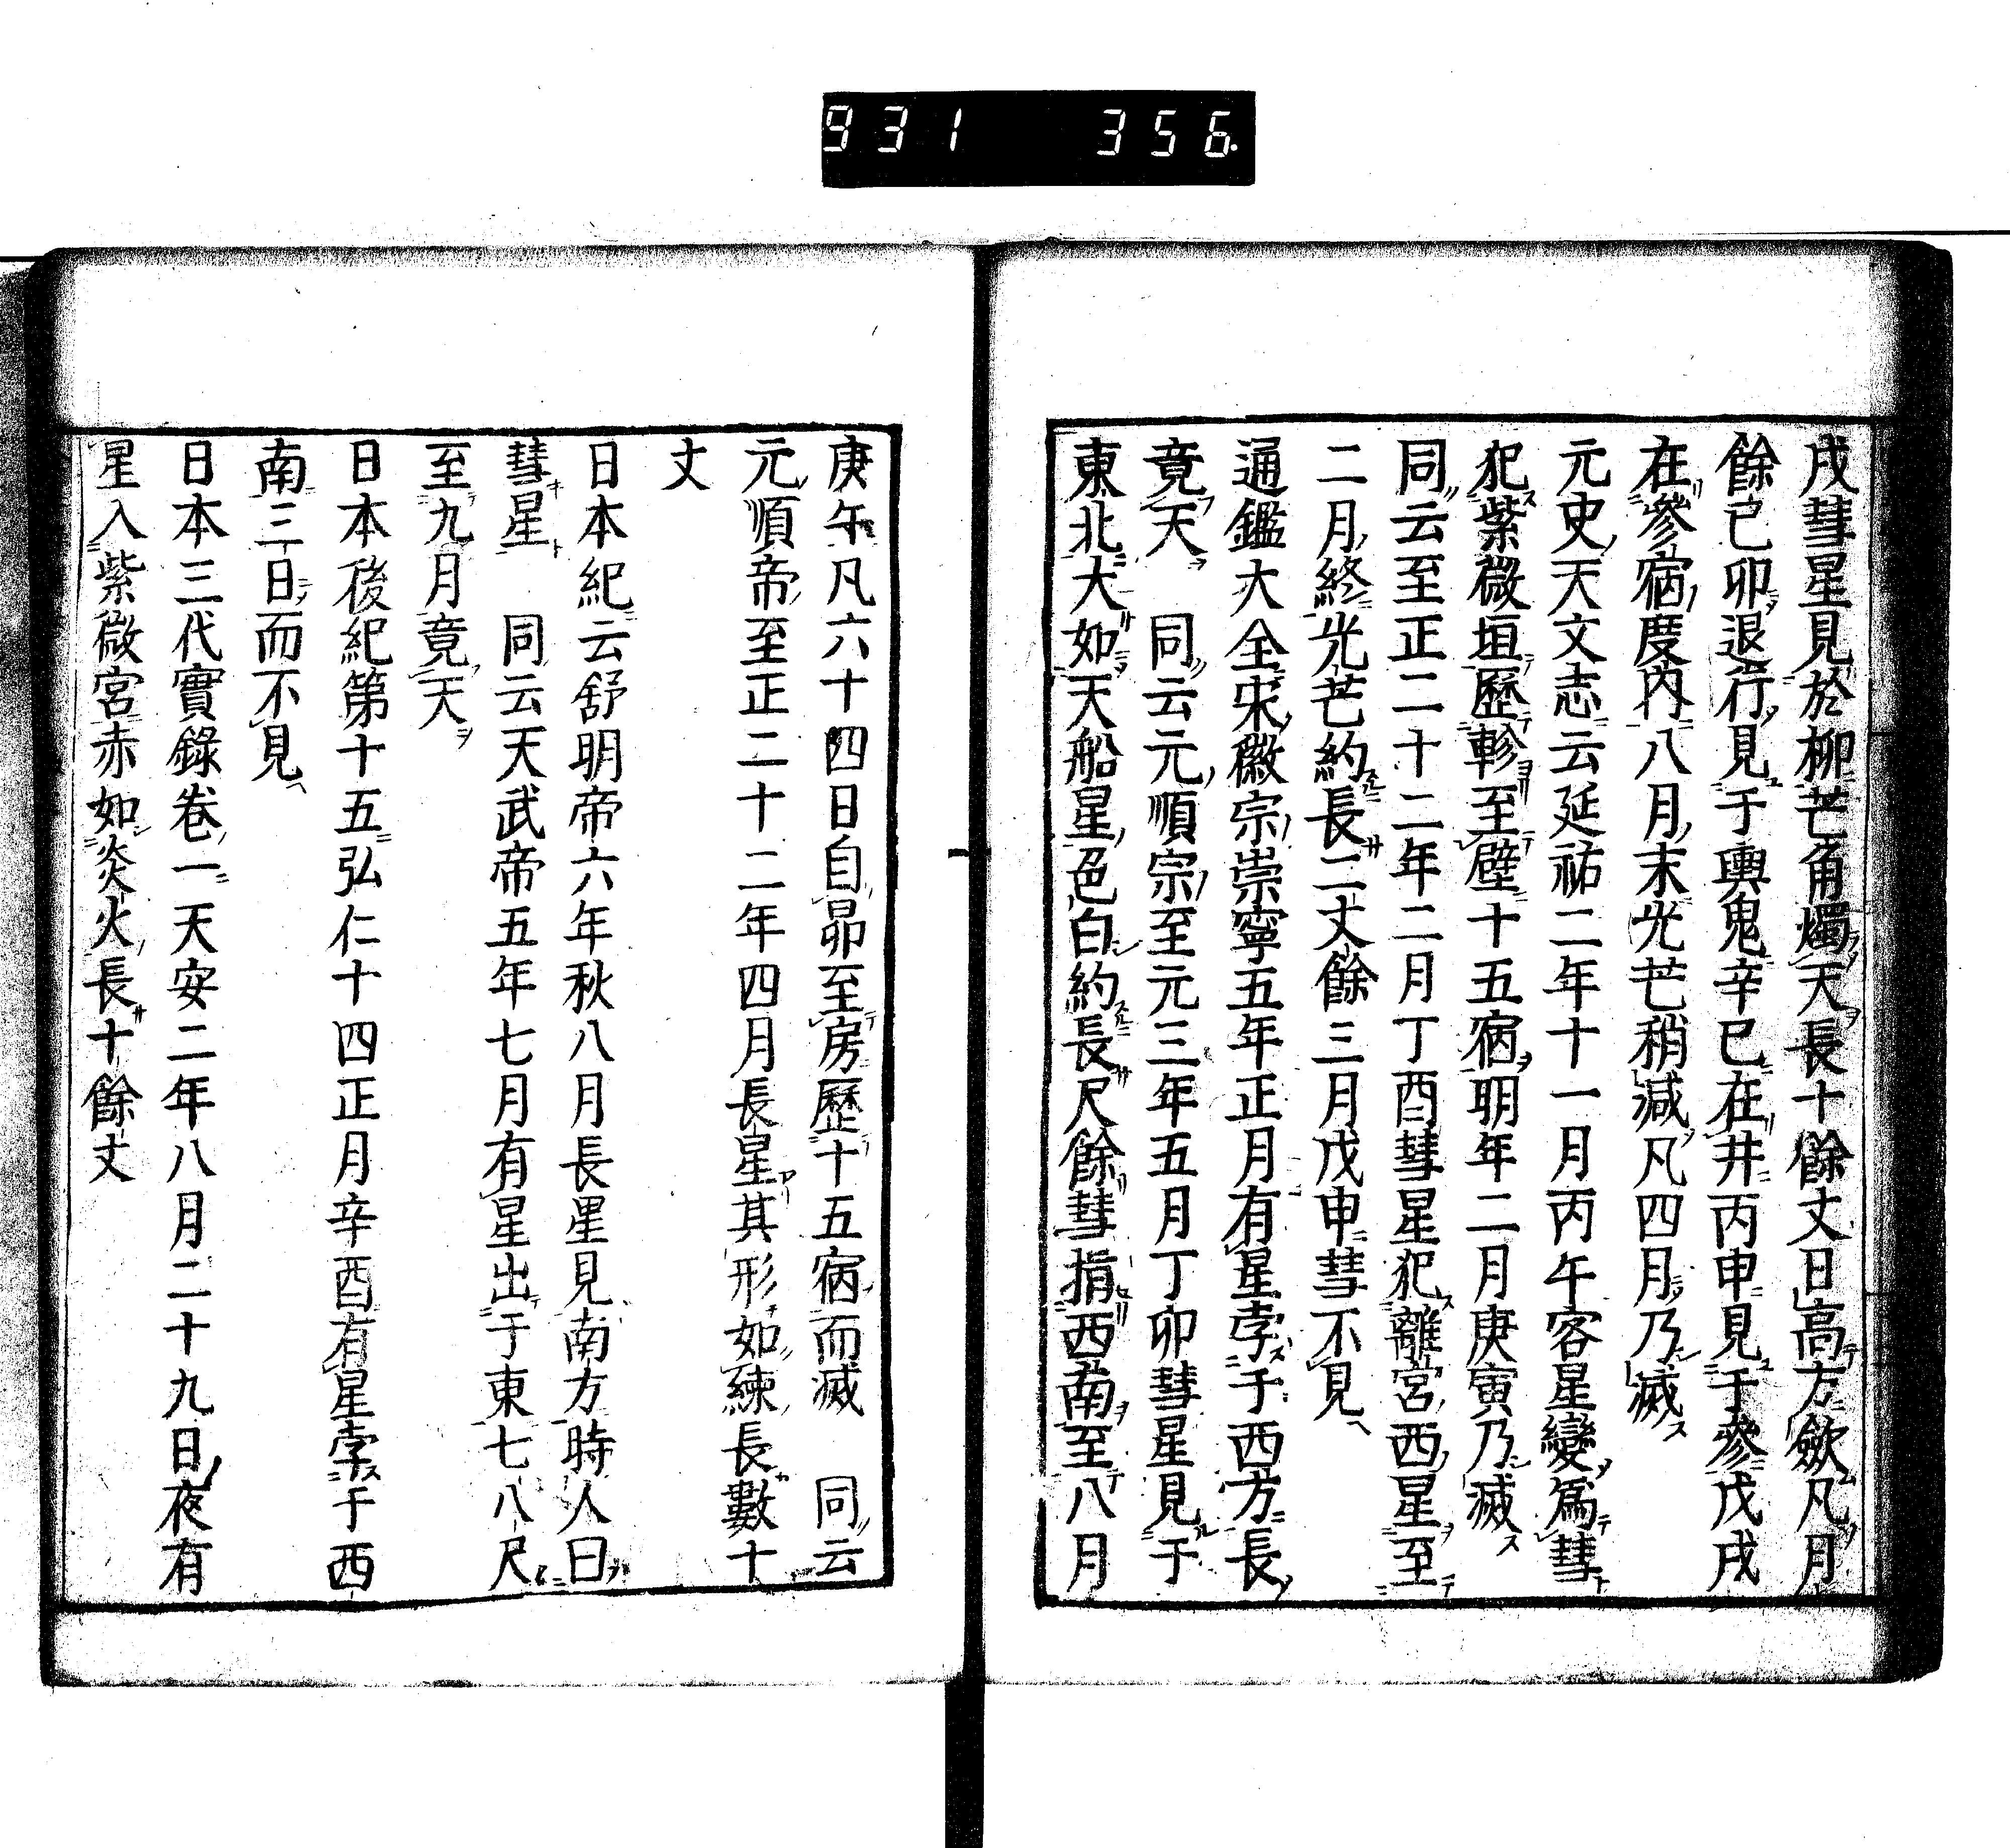 931 356.
戌彗星見於柳芒角燭天長十餘丈日高方歛凡月
餘已卯退行見于輿鬼辛巳在井丙申見于參戊戌
在參宿度內八月末光芒稍減凡四月乃滅
元史天文志云延祐二年十一月丙午客星變爲彗
犯紫微垣歷軫至壁十五宿明年二月庚寅乃滅
同云至正二十二年二月丁酉彗星犯離宮西星至
二月終光芒約長二丈餘三月戊申彗不見
通鑑大全宋徽宗崇寧五年正月有星孛于西方長
竟天　同云元順宗至元三年五月丁卯彗星見于
東北大如天船星色白約長尺餘彗指西南至八月
庚午凡六十四日自昴至房歷十五宿而滅　同云
元順帝至正二十二年四月長星其形如練長數十
丈
日本紀云舒明帝六年秋八月長星見南方時人曰
彗星　同云天武帝五年七月有星出于東七八尺
至九月竟天
日本後紀第十五弘仁十四正月辛酉有星孛于西
南三日而不見
日本三代實錄卷一天安二年八月二十九日夜有
星入紫微宮赤如炎火長十餘丈